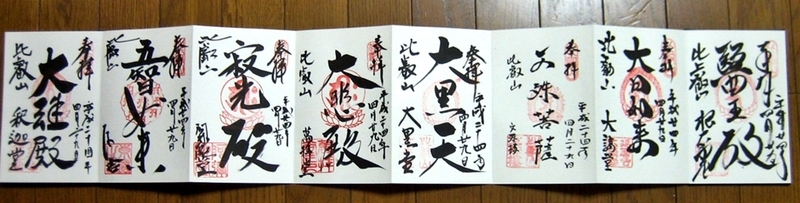 奉拝
平成二十四年
四月廿九日
醫王殿
比叡山 根本中堂
奉拝
平成廿四年
四月廿九日
大日如来
比叡山 大講堂
奉拝
平成二十四年
四月二十九日
文殊菩薩
比叡山
文殊楼
奉拝
平成二十四年
四月廿九日
大黒天
比叡山 大黒堂
奉拝
平成二十四年
四月廿九日
大悲殿
比叡山
奉拝
平成廿四年
四月廿九日
寂光殿
比叡山
奉拝
四月廿九日
五智如来
比叡山
奉拝
平成二十四年
四月二十九日
大雄殿
比叡山 釈迦堂